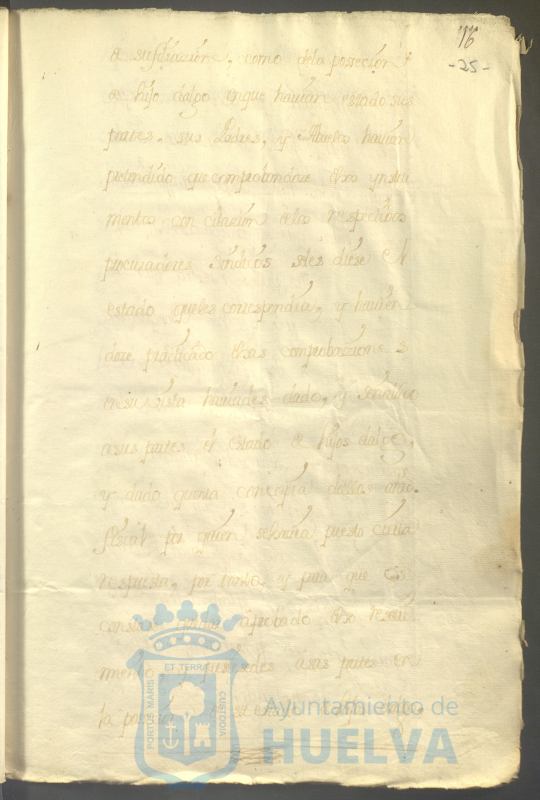 16
-25-
de su filiazion, como dela possecion
de hijo dalgo enque havian estado sus
partes, sus Padres, y Abuelos havian
pretendido que comprobandose dhos ynstru
mentos con citacion delos respectivos
procuradores Sindicos seles diese el
estado queles correspondia, y havien
dose practicado dhas comprobazions
ensu vista haviades dado, y señalado
asus partes el Estado de hijos dalgo,
y dado quenta con copia delos autos
fiscal por quien sehavia puesto cierta
respuesta, por tanto y para que
constase aprobado dho reciui
miento asus partes en
la posesion
PORTUS MARIS
ET TERRÆ
CUSTODIA
Ayuntamiento de
HUELVA